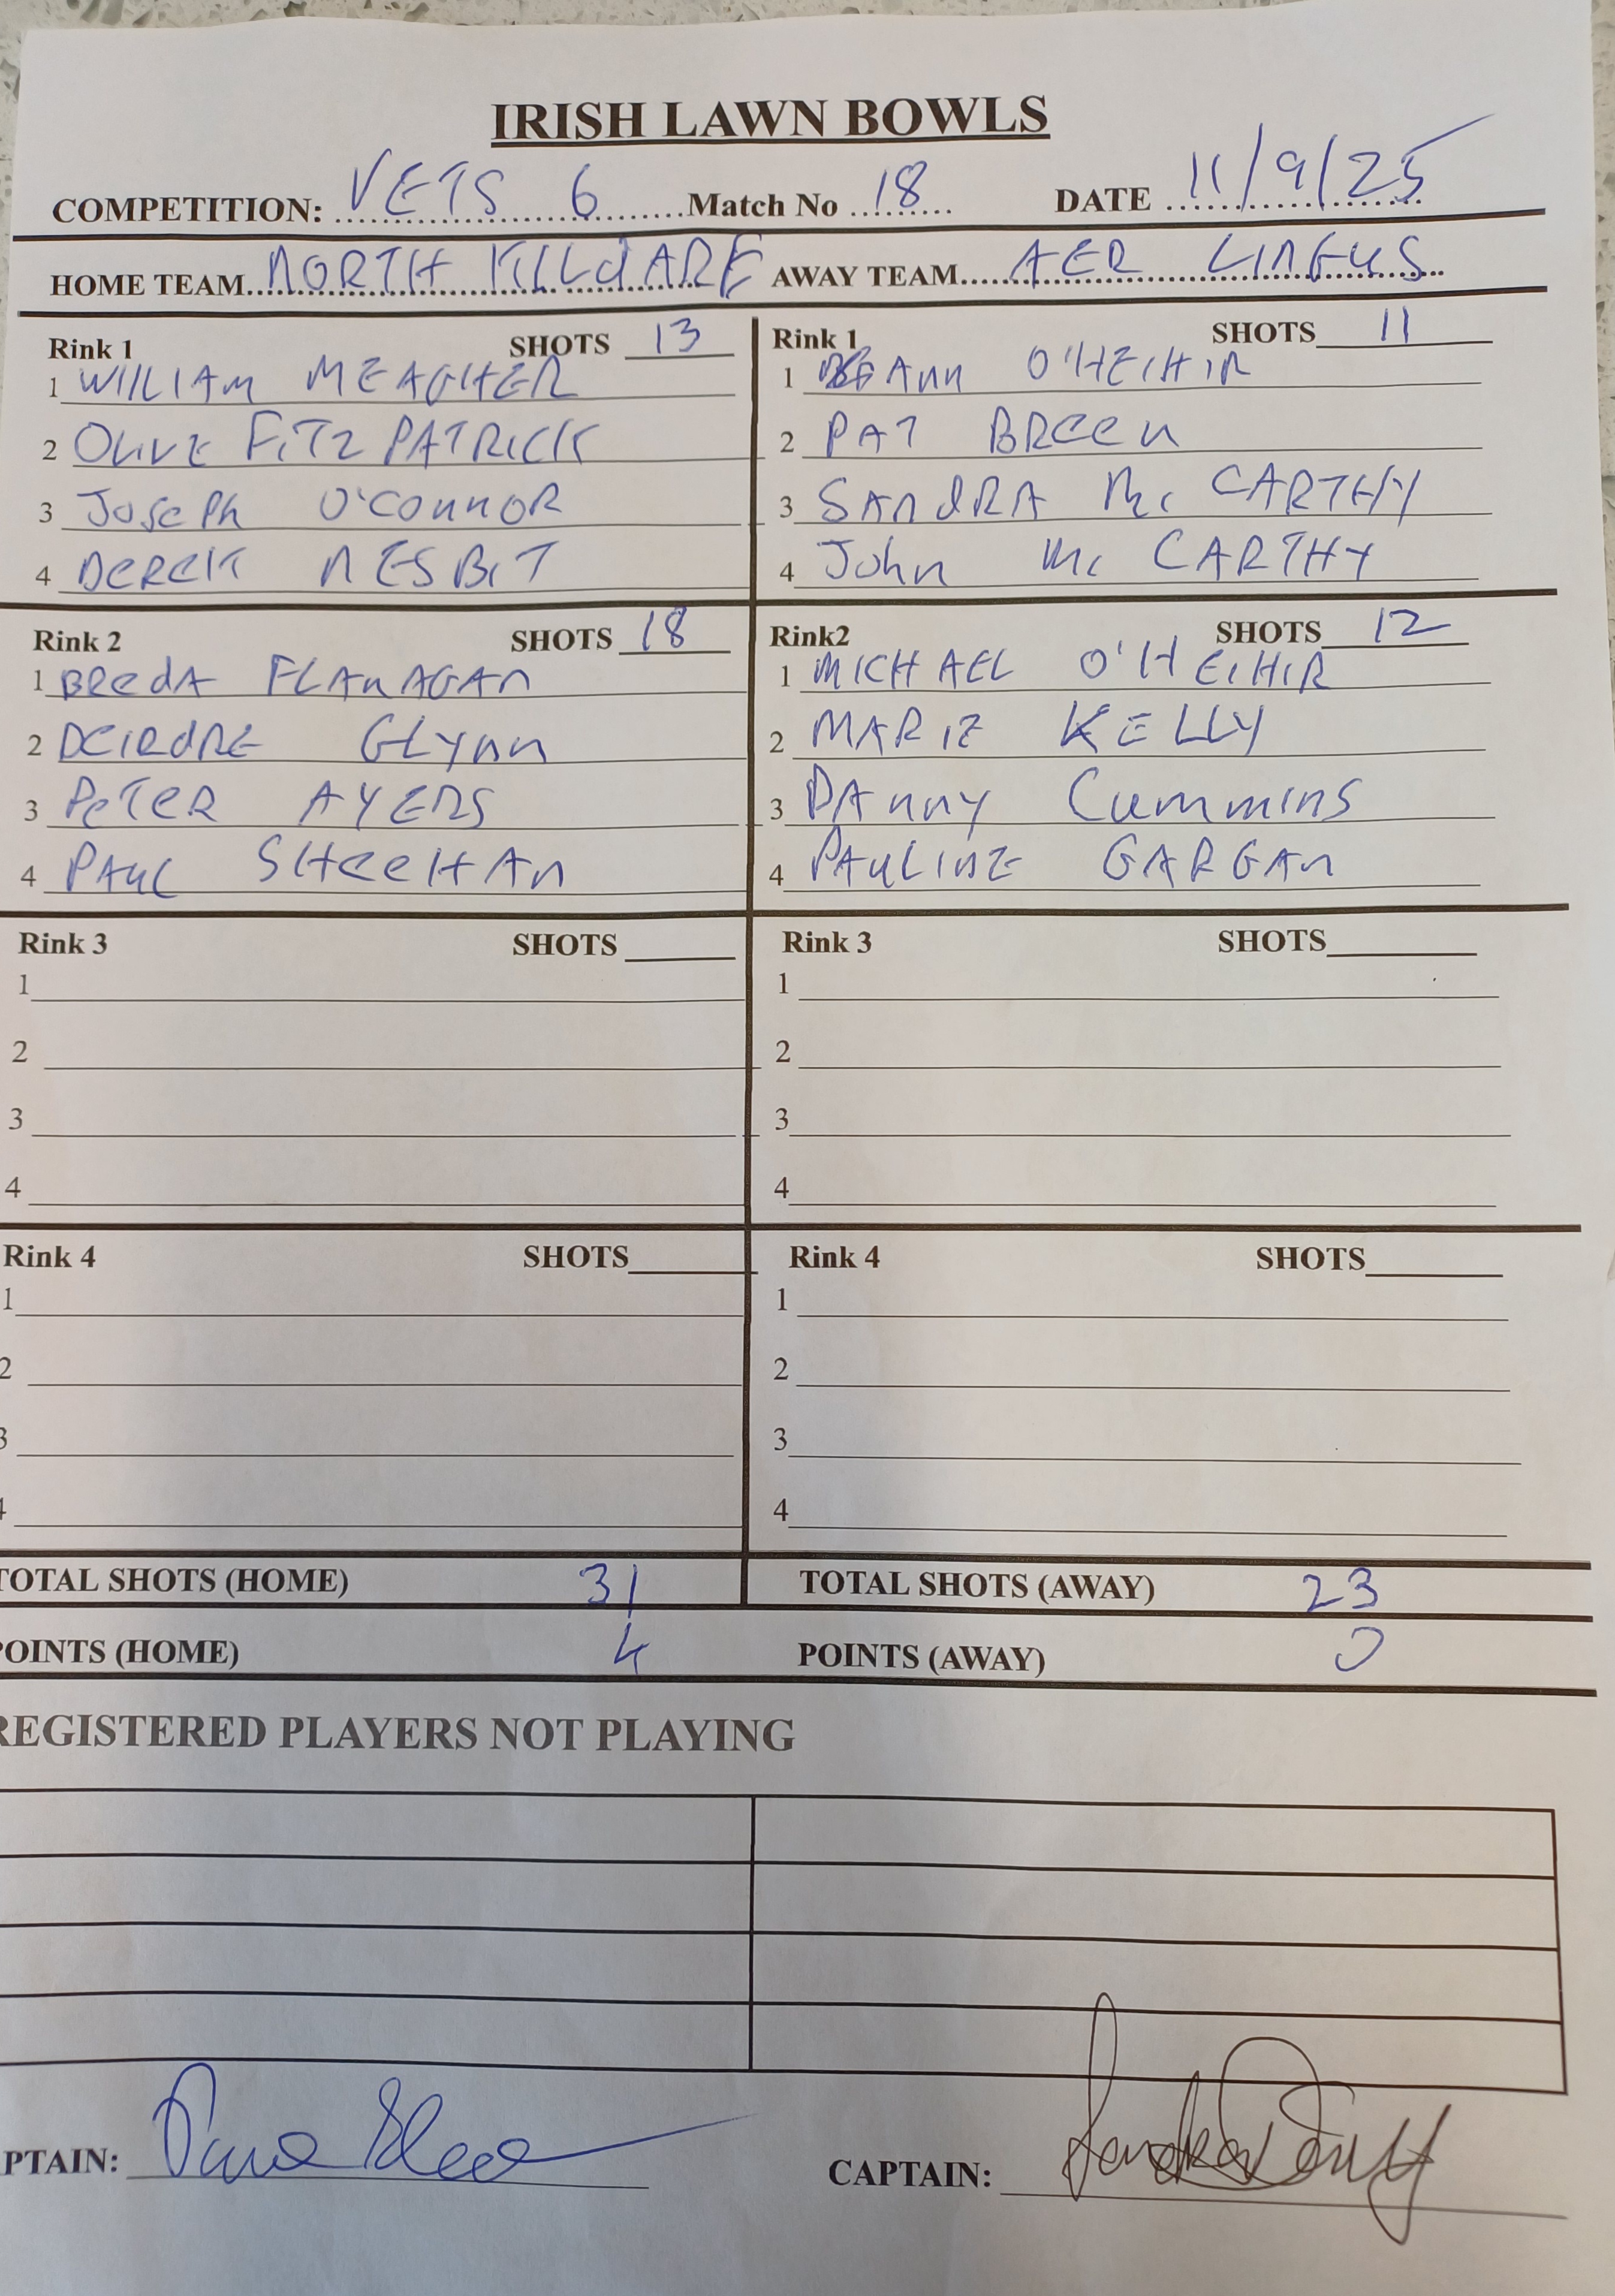 IRISH LAWN BOWLS
COMPETITION: VETS 6 Match No 18 DATE 11/9/25
HOME TEAM NORTH KILLdARE AWAY TEAM AER LINGUS
Rink 1 SHOTS 13
1 WILLIAM MEAGHER
2 OLIVE FITZPATRICK
3 JOSEPH O'CONNOR
4 DEREK NESBIT
Rink 1 SHOTS 11
1 ANN O'HEIHIR
2 PAT BREEN
3 SANDRA Mc CARTHY
4 John Mc CARTHY
Rink 2 SHOTS 18
1 BREDA FLANAGAN
2 DEIRDRE GLYNN
3 PETER AYERS
4 PAUL SHEEHAN
Rink2 SHOTS 12
1 MICHAEL O'HEIHIR
2 MARIE KELLY
3 DANNY Cummins
4 PAULINE GARGAN
Rink 3 SHOTS
1
2
3
4
Rink 3 SHOTS
1
2
3
4
Rink 4 SHOTS
1
2
3
4
Rink 4 SHOTS
1
2
3
4
TOTAL SHOTS (HOME) 31 TOTAL SHOTS (AWAY) 23
POINTS (HOME) 4 POINTS (AWAY) 0
REGISTERED PLAYERS NOT PLAYING
PTAIN: CAPTAIN: